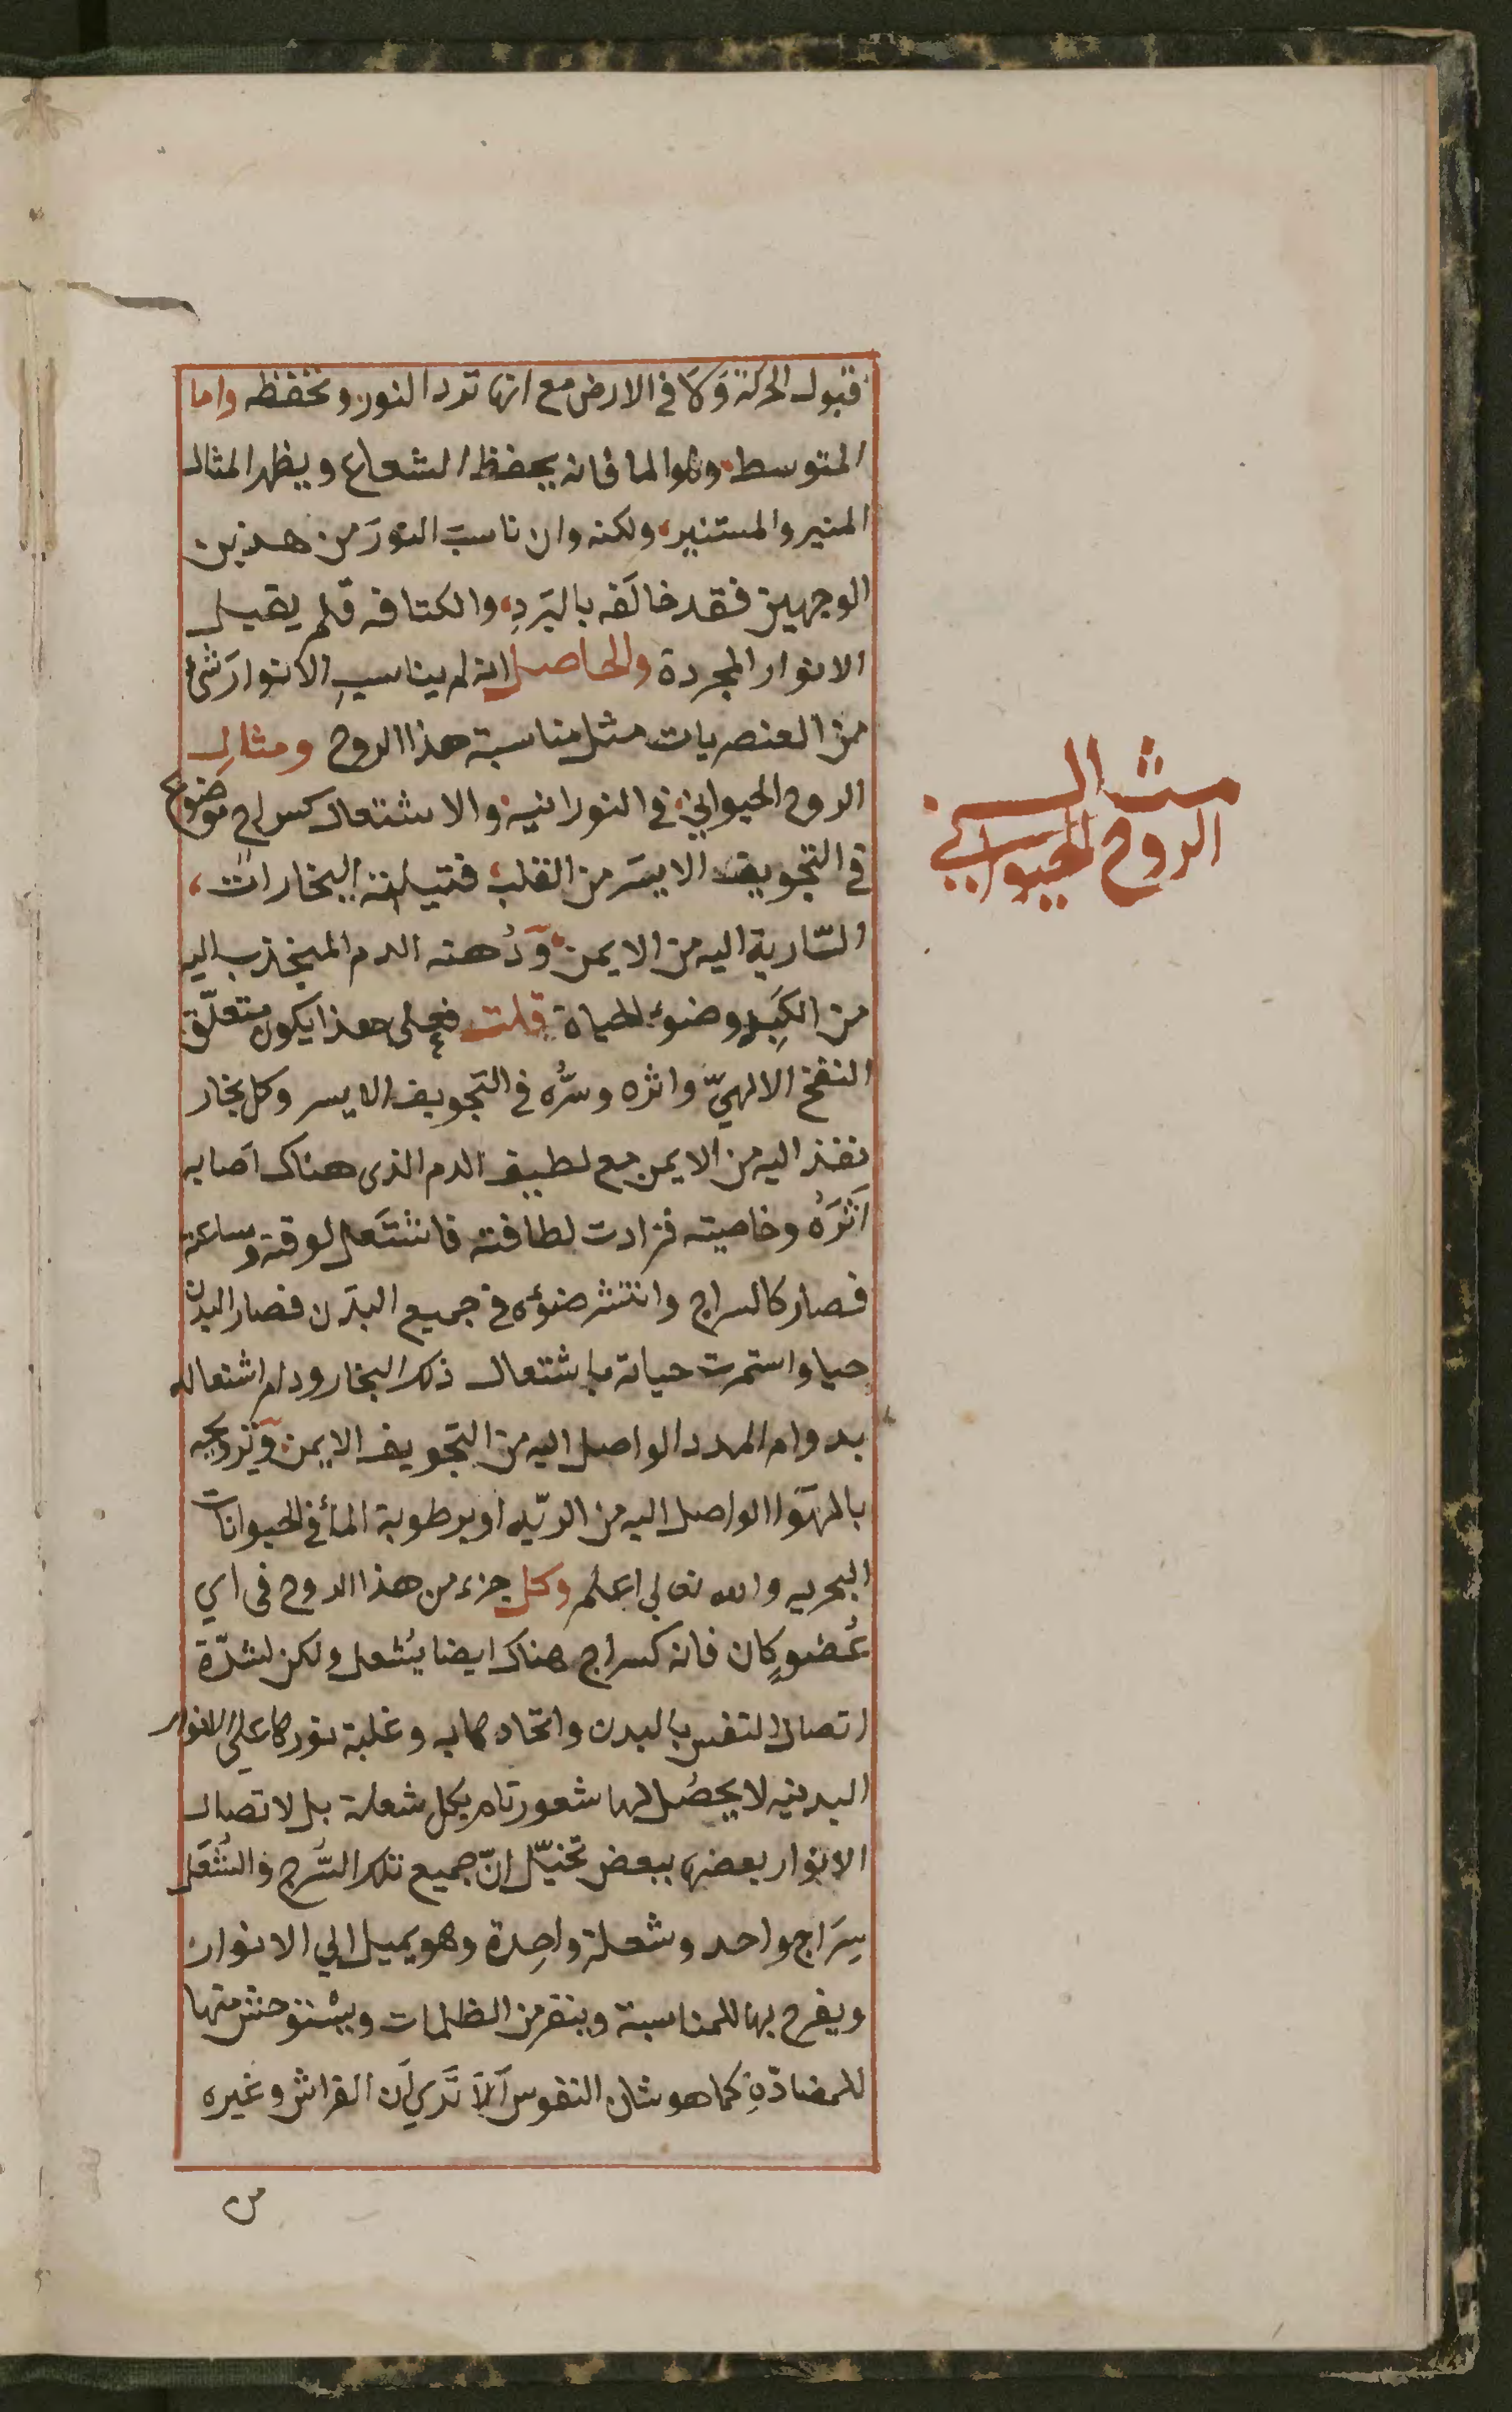 قبول الحركة وَلا في الارض مع انها تردد النور وتحفظه واما
المتوسط وهو الما فانه يحفظ الشعاع ويظهر المثال
المنير والمستنير، ولكنه وان ناسبَ النورَ من هذين
الوجهين فقد خالَفه بالبَردِ، والكثافه فلم يقبل
الانوار المجردة والحاصل انه لم يناسبِ الانوارَ شئ
من العنصريات مثل مناسبة هذا الروح ومثال
الروح الحيواني في النورانيه والاشتعال كسراج موضوع
في التجويف الايسَر من القلب، فتيلته البخارات،
السّارية اليه من الايمن، وَدُهنه الدم المنجذب اليه
من الكَبِد وضوءه الحياة قلت فعلى هذا يكون متعلّق
النفخ الالهيّ واثره وسرُّه في التجويف الايسر وكل بخار
نفذ اليه من الايمن مع لطيف الدم الذى هناك اصابه
اَثرَهُ وخاصيته فزادت لطافته فاشتَعل لوقته وساعته
فصار كالسراج وانتشر ضوؤه في جميع البَدَن فصار البدن
حيا واستمرت حياته باشتعال ذلك البخار ودام اشتعاله
بدوام المدد الواصل اليه من التجويف الايمن، وَترويحه
بالهوَا الواصل اليه من الريّه او برطوبة المأ في الحيوانات
البحريه والله تعالى اعلم وكل جزء من هذا الروح فى اي
عُضوٍ كان فانه كسراج هناك ايضا يُشعل ولكن لشدّة
اتصال النفس بالبدن واتحادها به وغلبة نورها علي الانوار
البدنيه لا يحصُل لها شعور تام بكل شعلة بل لاتصال
الانوار بعضها ببعض تخيّل اِنّ جميع تلك السُّرج وَالشُّعَل
سِرَاج واحد وشعلة واحِدة وهو يميل الي الانوار
ويفرح بها للمناسبة وينفر من الظلمات ويستوحش منها
للمضادّةِ كما هو شان النفوس اَلاَ تَري اَن الفراش وغيره
مثال
الروح الحيواني
من